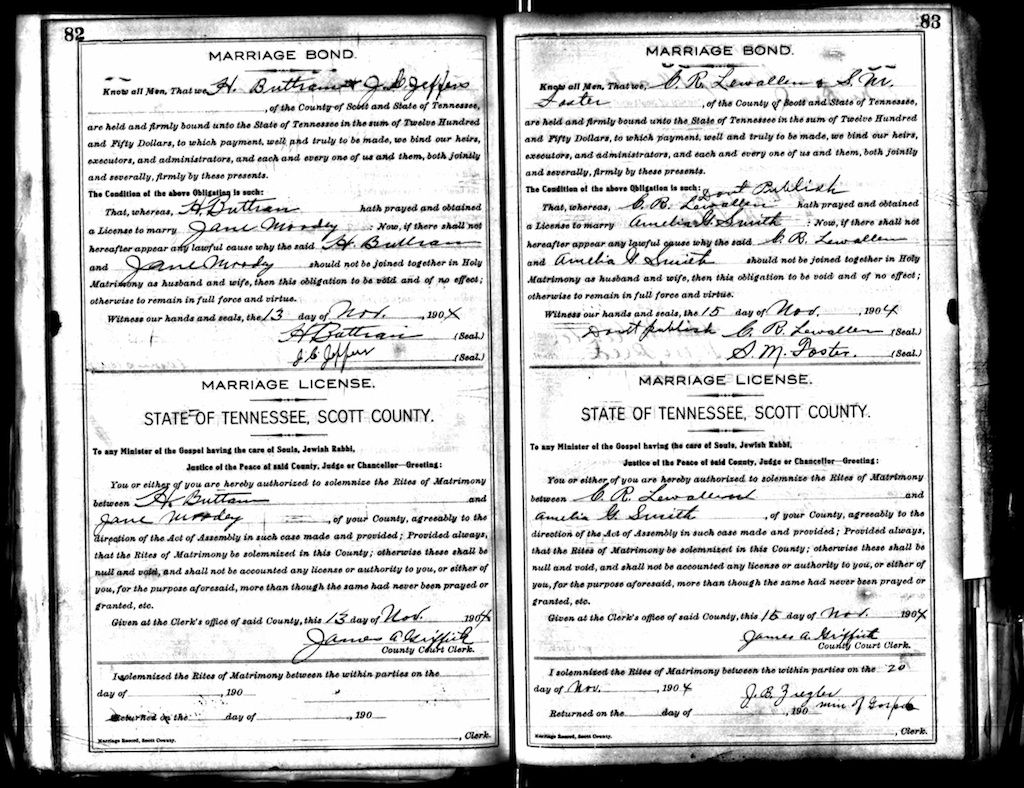 82
MARRIAGE BOND.
Know all Men, That we, H. Buttram & J. C. Jeffers
, of the County of Scott and State of Tennessee,
are held and firmly bound unto the State of Tennessee in the sum of Twelve Hundred
and Fifty Dollars, to which payment, well and truly to be made, we bind our heirs,
executors, and administrators, and each and every one of us and them, both jointly
and severally, firmly by these presents.
The Condition of the above Obligation is such:
That, whereas, H. Buttram hath prayed and obtained
a License to marry Jane Moodey : Now, if there shall not
hereafter appear any lawful cause why the said H. Buttram
and Jane Moodey should not be joined together in Holy
Matrimony as husband and wife, then this obligation to be void and of no effect;
otherwise to remain in full force and virtue.
Witness our hands and seals, the 13 day of Nov. , 1904
H Buttram (Seal.)
J. C. Jeffers (Seal.)
MARRIAGE LICENSE.
STATE OF TENNESSEE, SCOTT COUNTY.
To any Minister of the Gospel having the care of Souls, Jewish Rabbi,
Justice of the Peace of said County, Judge or Chancellor—Greeting:
You or either of you are hereby authorized to solemnize the Rites of Matrimony
between H. Buttram and
Jane Moodey , of your County, agreeably to the
direction of the Act of Assembly in such case made and provided; Provided always,
that the Rites of Matrimony be solemnized in this County; otherwise these shall be
null and void, and shall not be accounted any license or authority to you, or either of
you, for the purpose aforesaid, more than though the same had never been prayed or
granted, etc.
Given at the Clerk's office of said County, this 13 day of Nov. 1904
James A Griffith
County Court Clerk.
I solemnized the Rites of Matrimony between the within parties on the
day of , 190
Returned on the day of , 190
, Clerk.
Marriage Record, Scott County.
83
MARRIAGE BOND.
Know all Men, That we, C. R. Lewallen & S. M.
Foster , of the County of Scott and State of Tennessee,
are held and firmly bound unto the State of Tennessee in the sum of Twelve Hundred
and Fifty Dollars, to which payment, well and truly to be made, we bind our heirs,
executors, and administrators, and each and every one of us and them, both jointly
and severally, firmly by these presents.
The Condition of the above Obligation is such: Dont Publish
That, whereas, C. R. Lewallen hath prayed and obtained
a License to marry Amelia G. Smith : Now, if there shall not
hereafter appear any lawful cause why the said C. R. Lewallen
and Amelia G. Smith should not be joined together in Holy
Matrimony as husband and wife, then this obligation to be void and of no effect;
otherwise to remain in full force and virtue.
Witness our hands and seals, the 15 day of Nov. , 1904
Dont publish C. R. Lewallen (Seal.)
S. M. Foster. (Seal.)
MARRIAGE LICENSE.
STATE OF TENNESSEE, SCOTT COUNTY.
To any Minister of the Gospel having the care of Souls, Jewish Rabbi,
Justice of the Peace of said County, Judge or Chancellor—Greeting:
You or either of you are hereby authorized to solemnize the Rites of Matrimony
between C. R. Lewallen and
Amelia G. Smith , of your County, agreeably to the
direction of the Act of Assembly in such case made and provided; Provided always,
that the Rites of Matrimony be solemnized in this County; otherwise these shall be
null and void, and shall not be accounted any license or authority to you, or either of
you, for the purpose aforesaid, more than though the same had never been prayed or
granted, etc.
Given at the Clerk's office of said County, this 15 day of Nov. 1904
James A. Griffith
County Court Clerk.
I solemnized the Rites of Matrimony between the within parties on the 20
day of Nov. , 1904 J. B. Ziegler
Returned on the day of , 190 min of Gospel
, Clerk.
Marriage Record, Scott County.